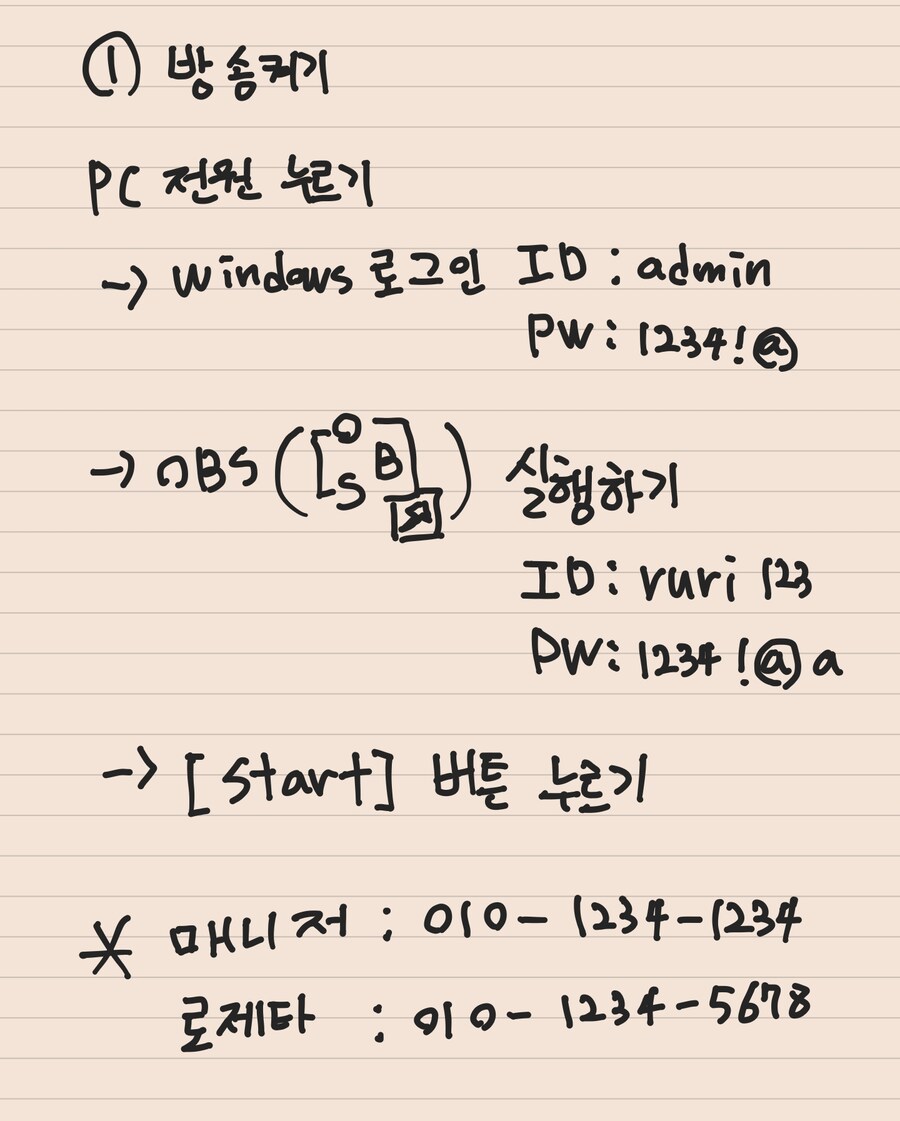 ① 방송켜기
PC 전원 누르기
→ Windows 로그인 ID : admin
PW : 1234!@
→ OBS ([OBS]) 실행하기
ID : ruri 123
PW : 1234!@a
→ [Start] 버튼 누르기
* 매니저 : 010-1234-1234
로제타 : 010-1234-5678